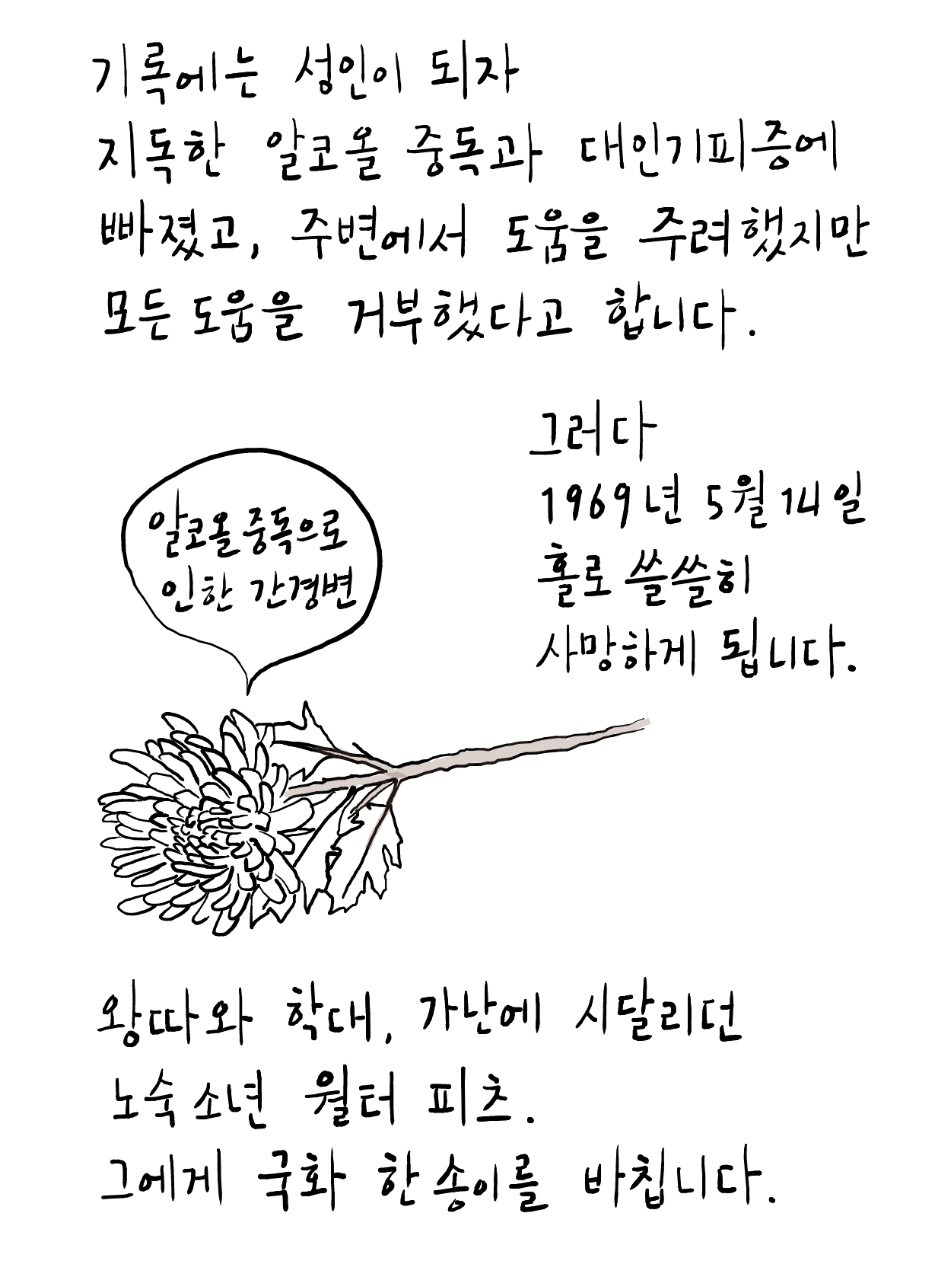 기록에는 성인이 되자
지독한 알코올 중독과 대인기피증에
빠졌고, 주변에서 도움을 주려했지만
모든 도움을 거부했다고 합니다.
그러다
1969년 5월 14일
홀로 쓸쓸히
사망하게 됩니다.
알코올 중독으로
인한 간경변
왕따와 학대, 가난에 시달리던
노숙소년 월터 피츠.
그에게 국화 한 송이를 바칩니다.